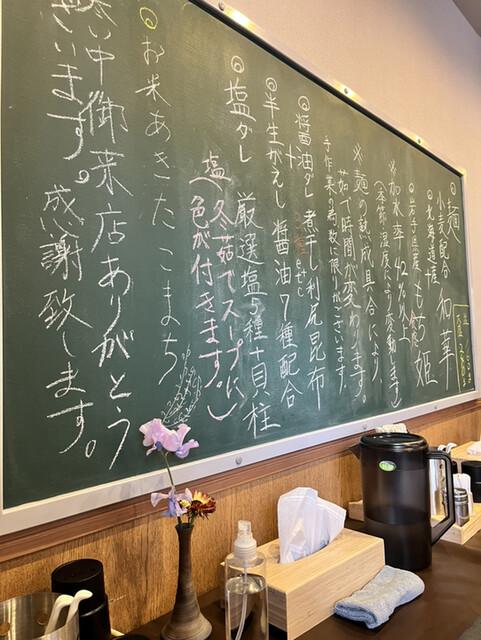 ◎麺
小麦配合
北海道産 和華
◎岩手県産 もち姫
※加水率42%以上
(季節、湿度により変動します)
※麺の熟成具合により、
茹で時間が変わります。
手作業の為、数に限りがございます。
◎醤油ダレ 煮干し利尻昆布
＋
◎半生がえし 醤油7種配合
◎塩ダレ 厳選塩5種＋貝柱
塩(冬茹でスープに
色が付きます。)
◎お米あきたこまち
寒い中御来店ありがとう
ざいます。感謝致します。